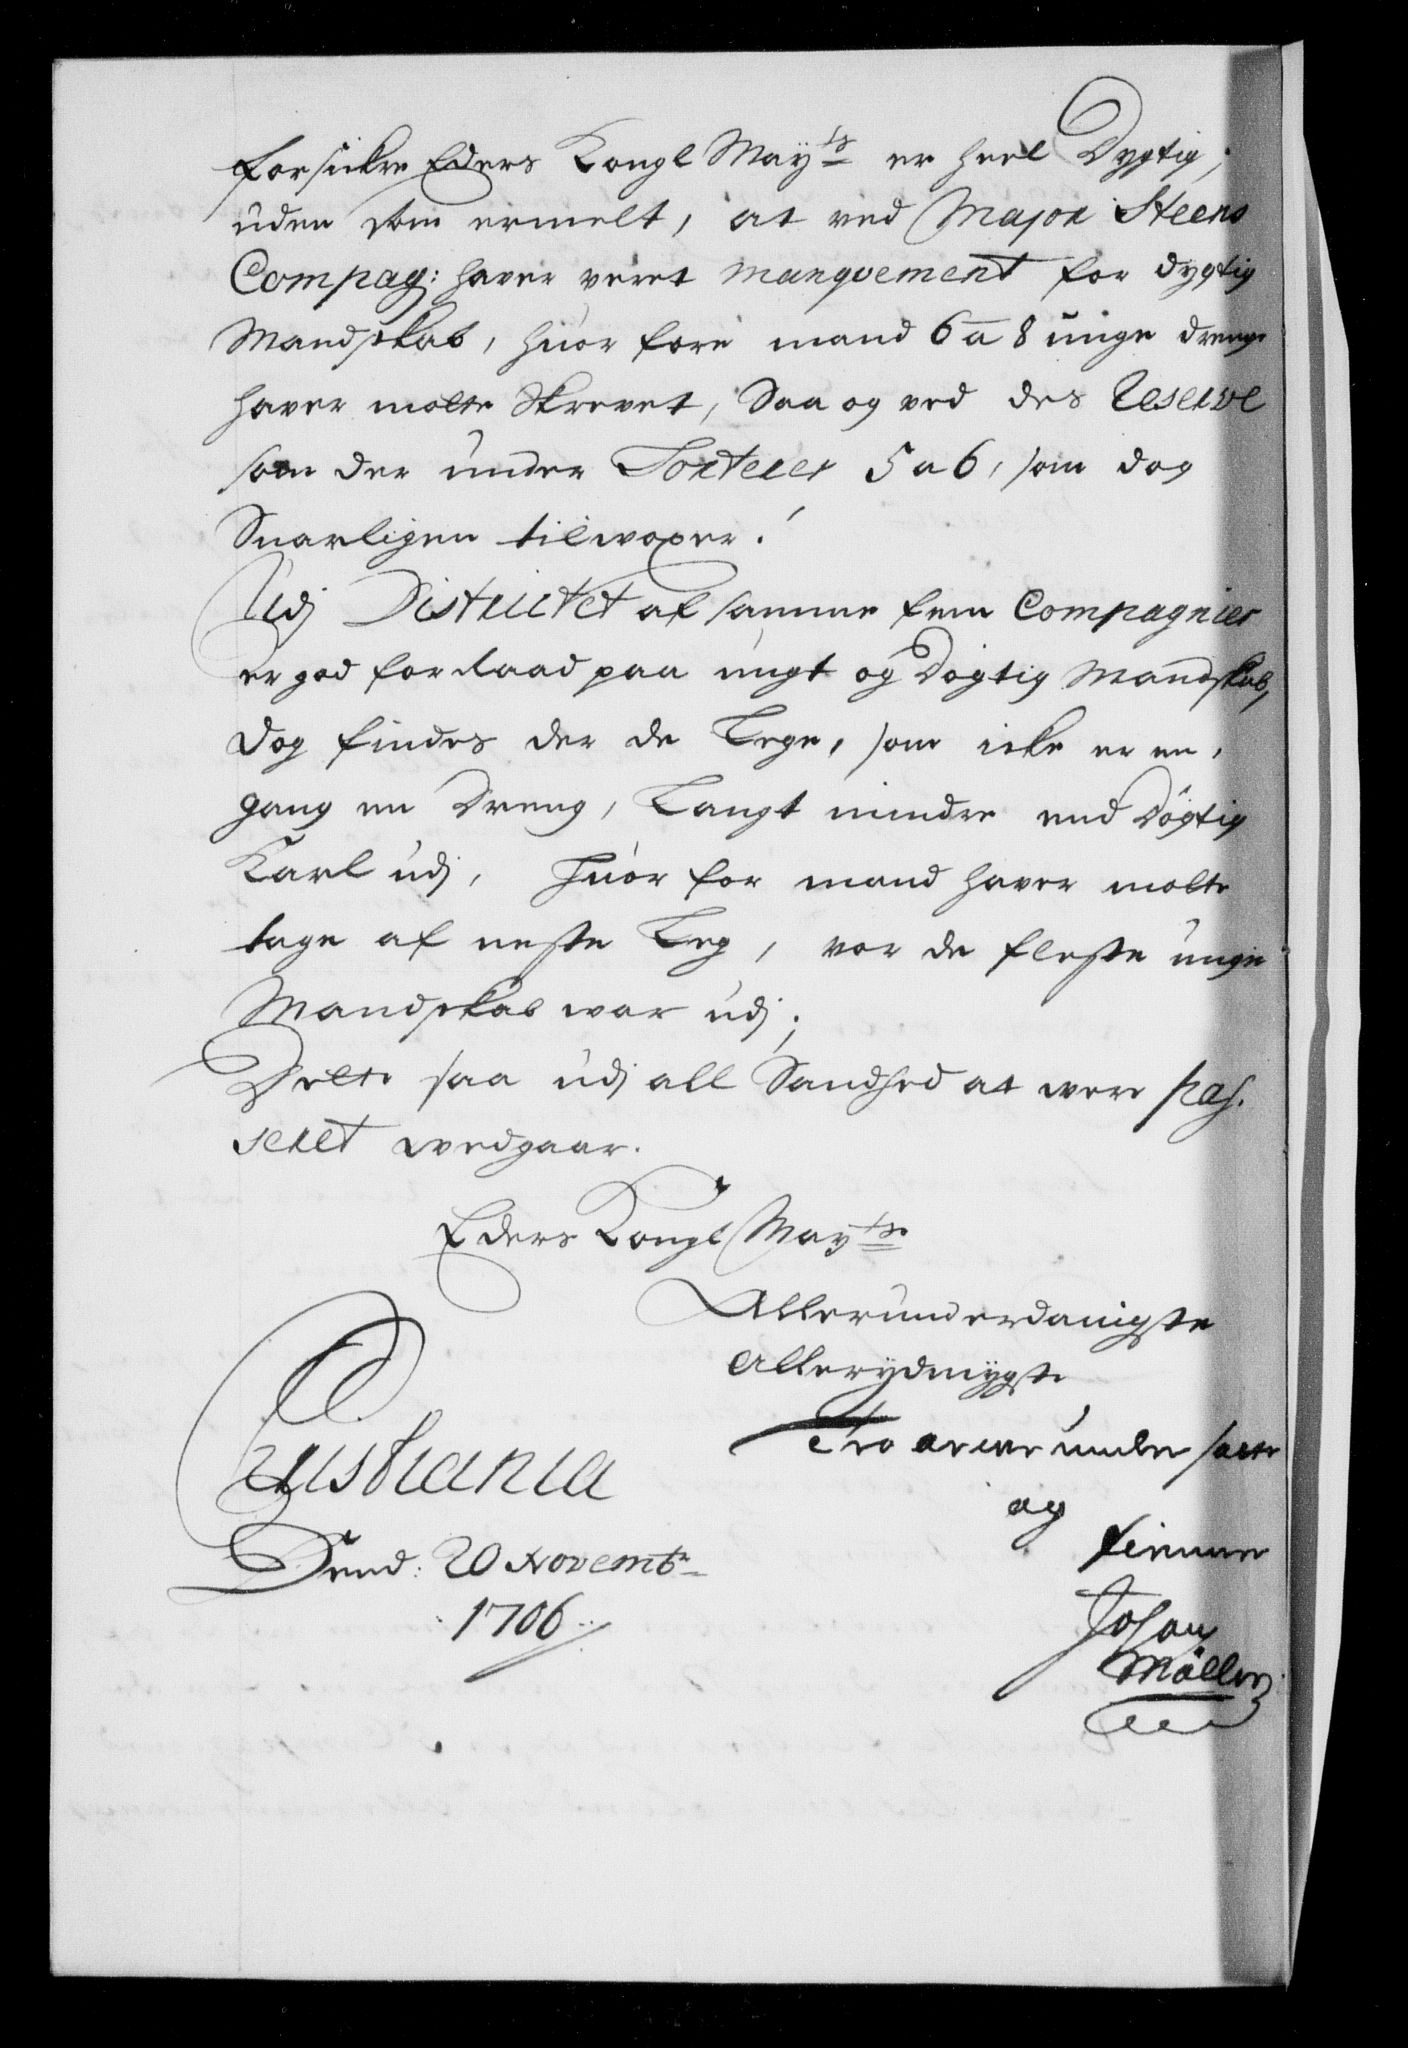 forsickre Eders Kongl May:ts er heel Dygtig,
uden som ermelt, at ved Major Steens
Compag: haver veret manqvement for dygtig
Mandskab, huor fore mand 6 a 8 unge drenge
haver motte Skrevet, Saa og ved des Reserve
som der under Sorterer 5 a 6, som dog
Snarligen tilwoxer.
Udj Districtet af samme fem Compagnier
er god forRaad paa ungt og Dögtig Mandskab,
dog findes der de Lege, som icke er en,
gang en Dreng, Langt mindre end Dögtig
Karl udj, huor for mand haver motte
tage af neste Leg, vor de fleste unge
Mandskab war udj;
Dette saa udj all Sandhed at were pas.
seret wedgaar.
Eders Kongl May:ts
Allerunderdanigste
Allerydmygste
Troe under satte
og
tienner
Johan
Möller
Christiania
Dend: 20 Novembr
1706